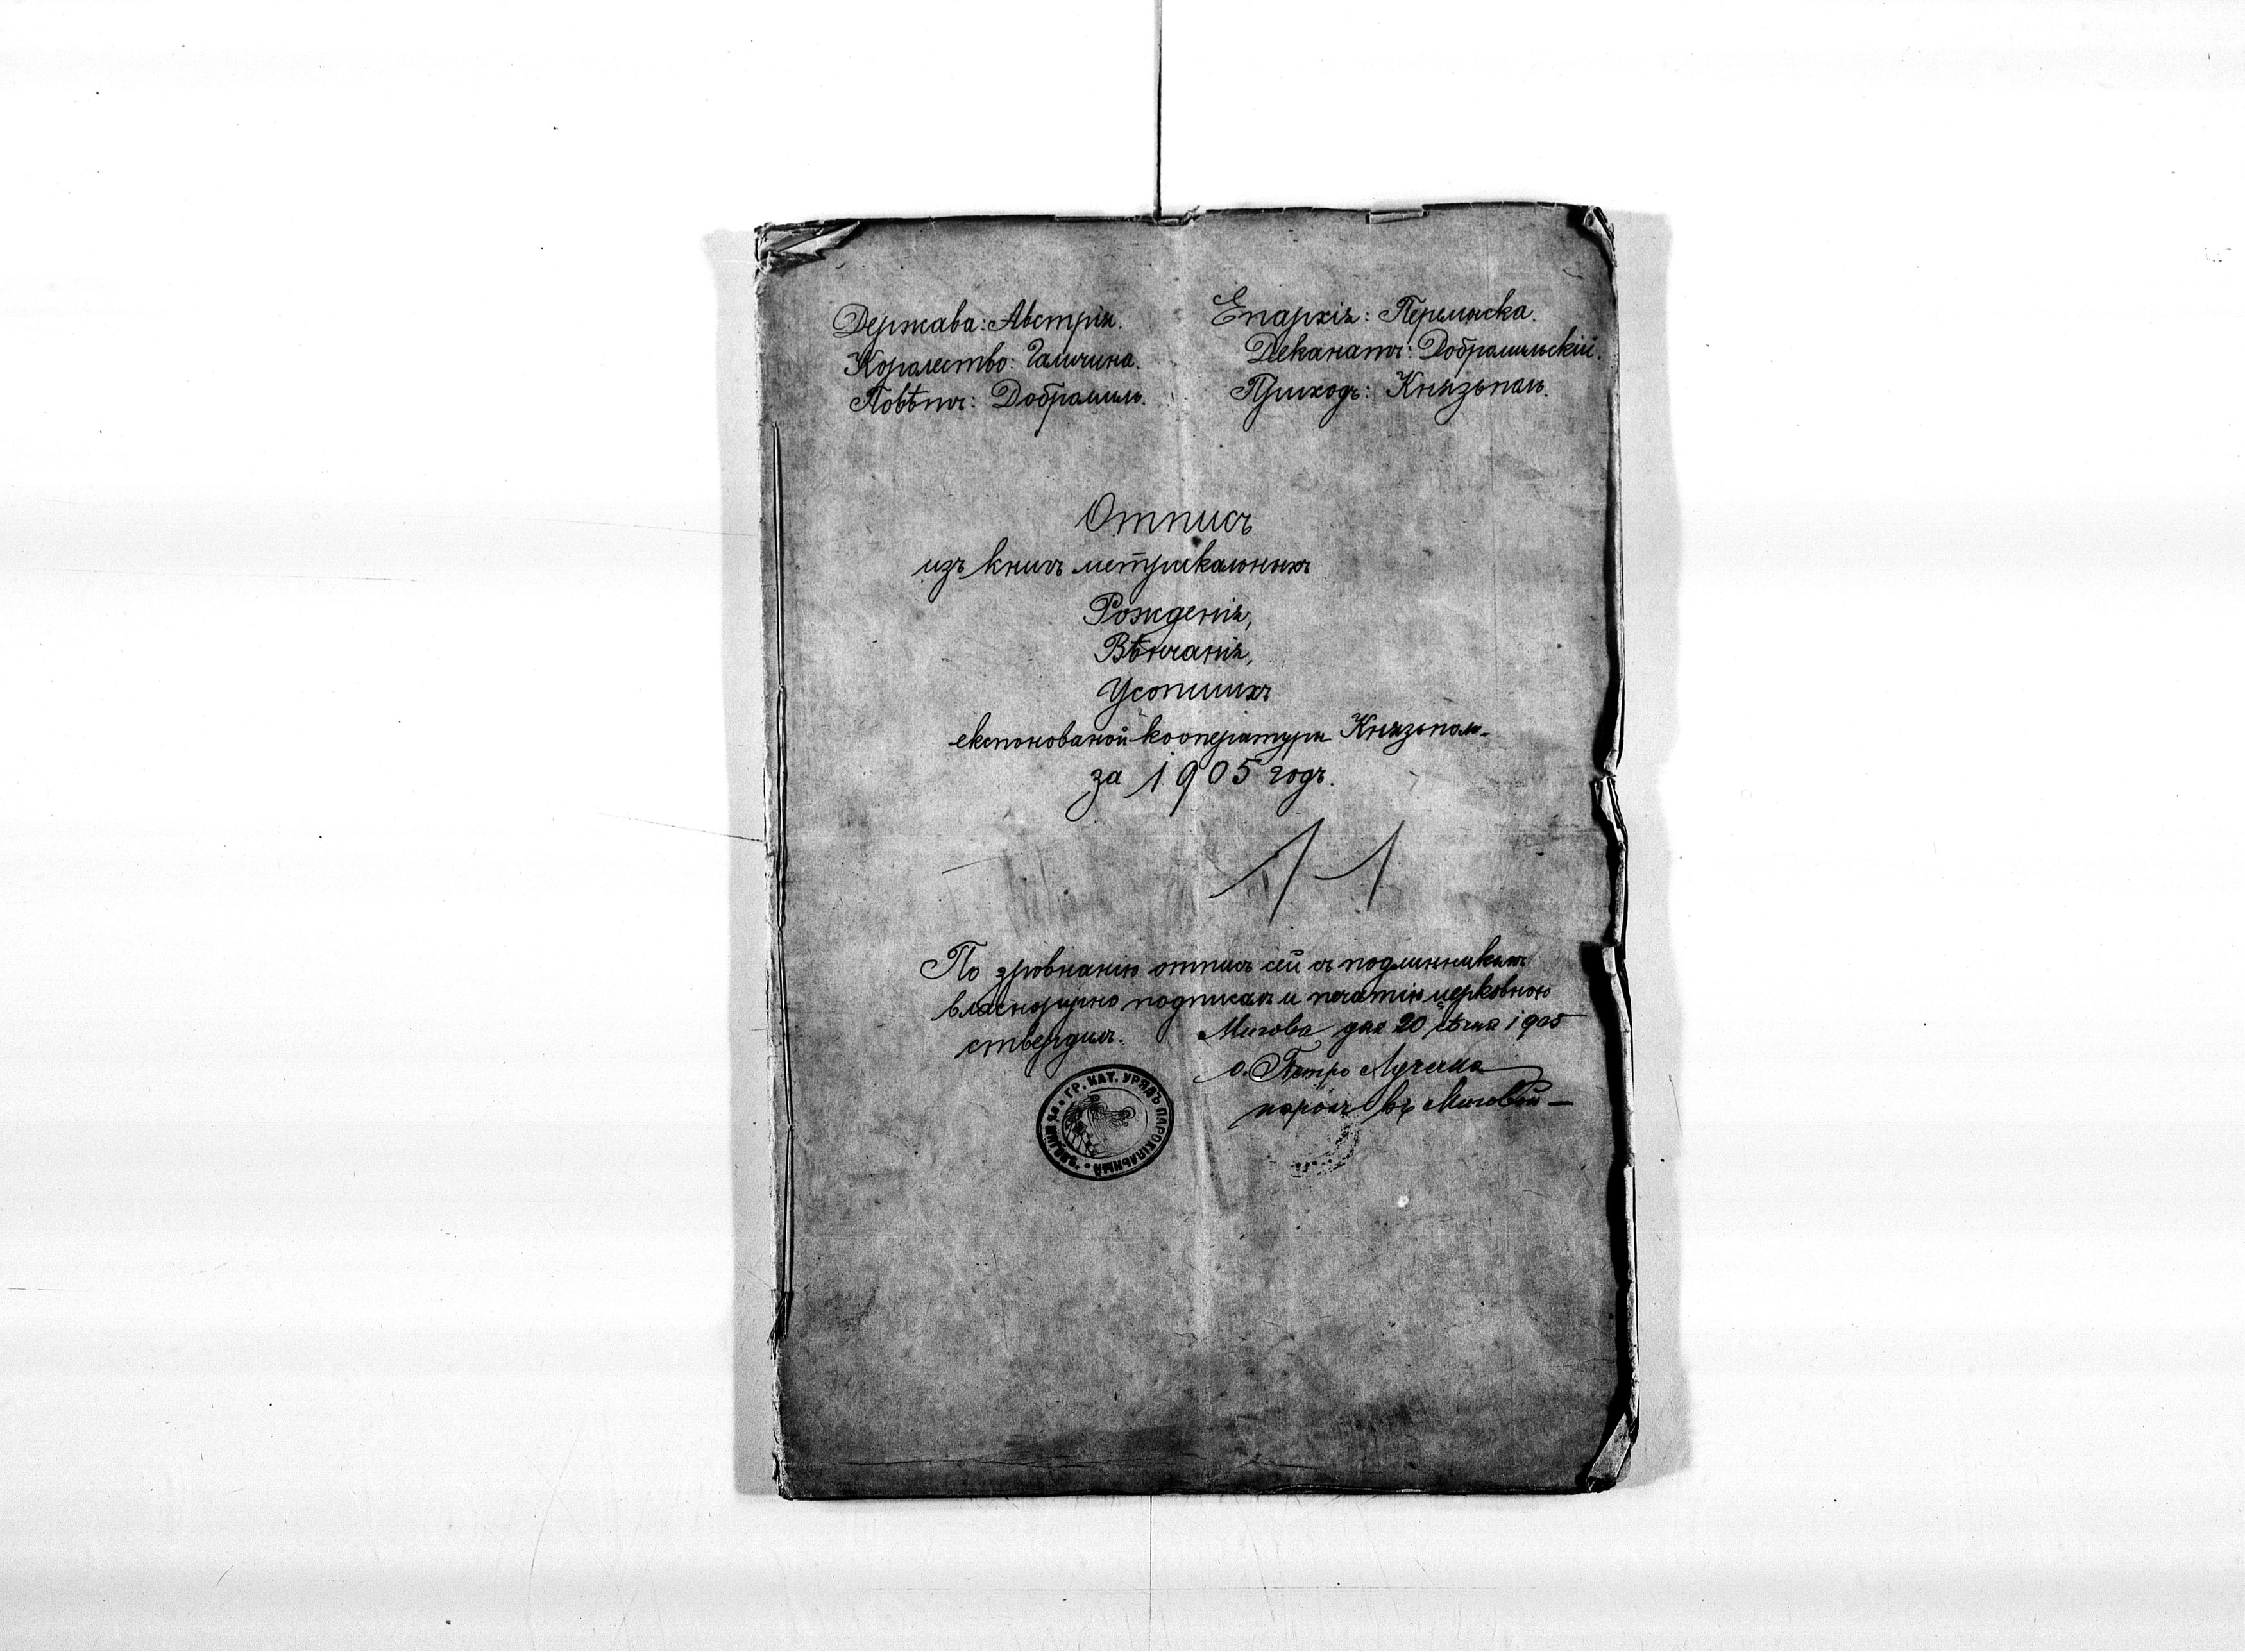 Держава: Австрія.
Королество: Галичина.
Повѣтъ: Добромиль.
Епархія: Перемыска.
Деканатъ: Добромильскій.
Приходъ: Князьполь.
Отписъ
изъ книгъ метрикальныхъ
Рожденія,
Вѣнчанія,
Усопшихъ
експонованой коопературы Князьполь
за 1905 годъ.
11
По зровнанію отписъ сей съ подлинникомъ
власноручно подписалъ и печатію церковною
ствердилъ.
Мигова дня 20 сѣчня 1905
о. Петро
парохъ въ Миговой
ГР. КАТ. УРЯДЪ ПАРОХІАЛЬНЫЙ